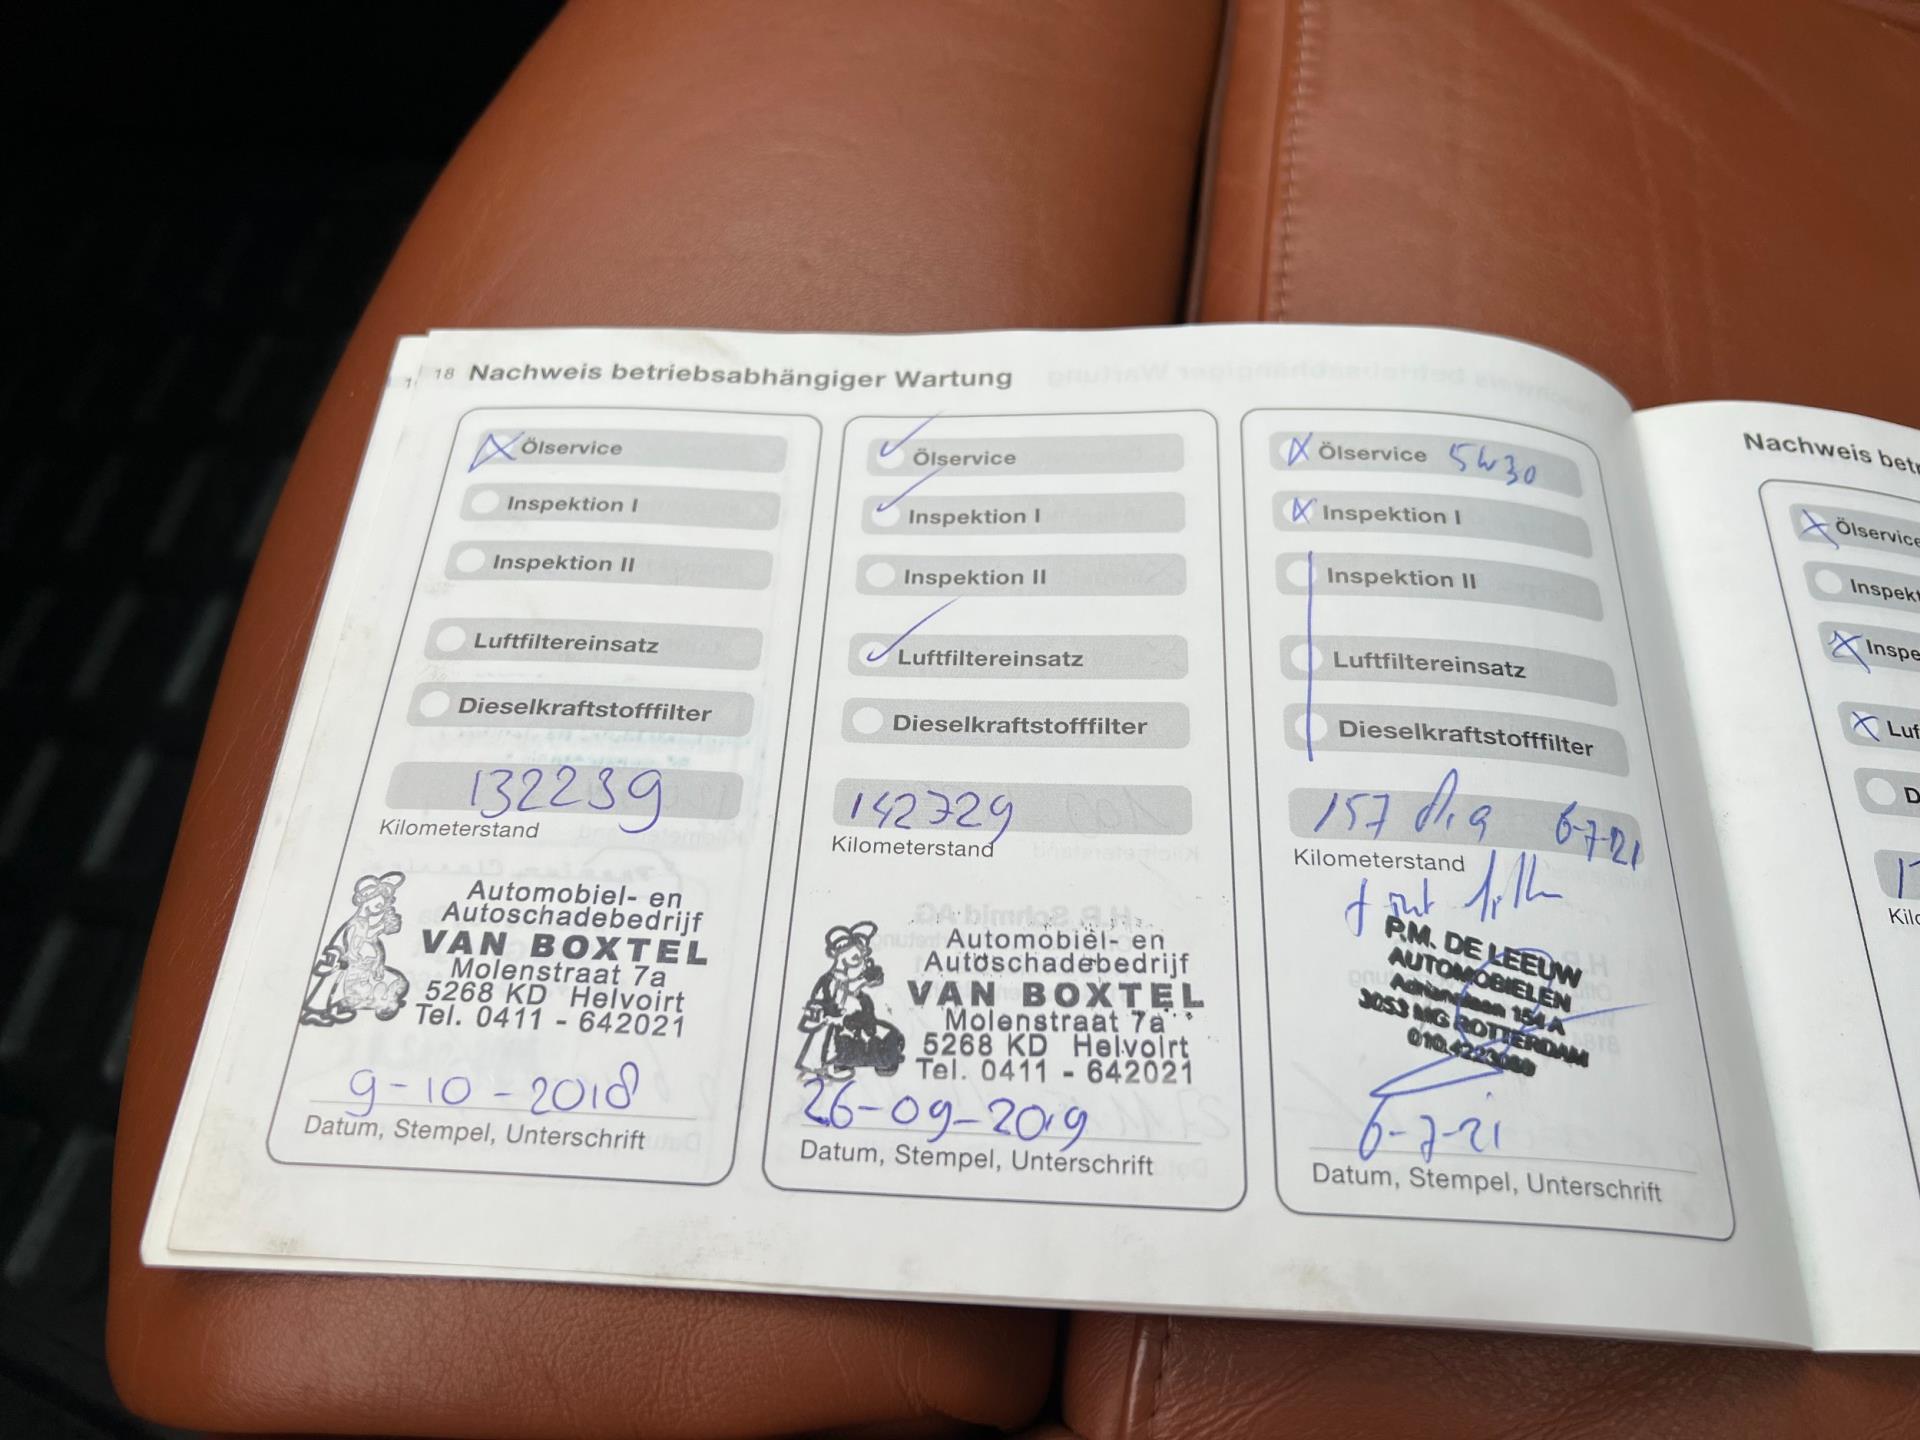 18 Nachweis betriebsabhängiger Wartung
Ölservice
Inspektion I
Inspektion II
Luftfiltereinsatz
Dieselkraftstofffilter
132239
Kilometerstand
Automobiel- en
Autoschadebedrijf
VAN BOXTEL
Molenstraat 7a
5268 KD Helvoirt
Tel. 0411 - 642021
9-10-2018
Datum, Stempel, Unterschrift
Ölservice
Inspektion I
Inspektion II
Luftfiltereinsatz
Dieselkraftstofffilter
142729
Kilometerstand
Automobiel- en
Autoschadebedrijf
VAN BOXTEL
Molenstraat 7a
5268 KD Helvoirt
Tel. 0411 - 642021
26-09-2019
Datum, Stempel, Unterschrift
Ölservice 5W30
Inspektion I
Inspektion II
Luftfiltereinsatz
Dieselkraftstofffilter
157 6-7-21
Kilometerstand
P.M. DE LEEUW
AUTOMOBIELEN
154 A
3053 MG ROTTERDAM
6-7-21
Datum, Stempel, Unterschrift
Nachweis betr
Ölservice
Inspekt
Inspe
Luf
D
Kilo